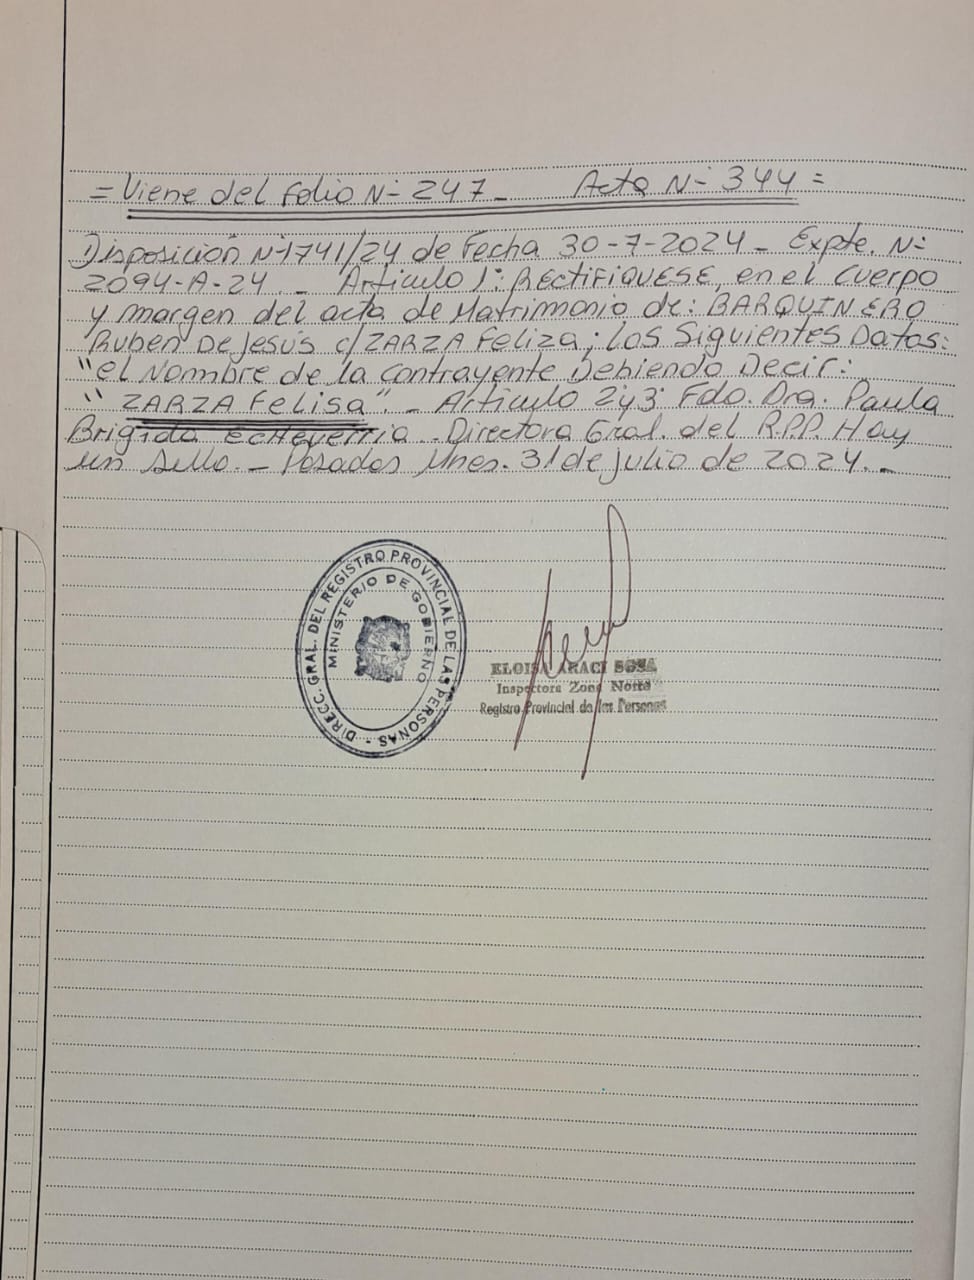 = Viene del Folio N- 247_ Acta N- 344 =
Disposición N-1741/24 de Fecha 30-7-2024_ Expte. N-
2094-A-24._ Artículo 1: RECTIFIQUESE, en el Cuerpo
y margen del acta de Matrimonio de: BARQUINERO
Ruben De Jesús c/ZARZA Feliza; los Siguientes Datos:
"el Nombre de la Contrayente Debiendo Decir:
" ZARZA Felisa"._ Artículo 2y3 Fdo. Dra. Paula
Brigida Echeverria_ Directora Gral. del R.P.P. Hay
un sello._ Posadas Mnes. 31 de julio de 2024._
DIRECC. GRAL. DEL REGISTRO PROVINCIAL DE LAS PERSONAS -
MINISTERIO DE GOBIERNO
ELOISA ARACI SOSA
Inspectora Zona Norte
Registro Provincial de las Personas